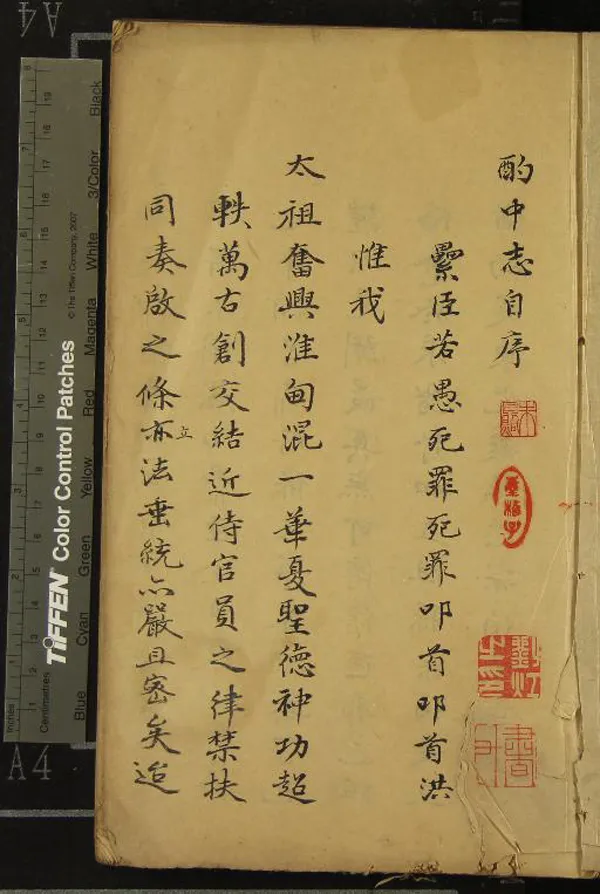 酌中志自序
纍臣若愚死罪死罪叩首叩首洪
惟我
太祖奮興淮甸混一華夏聖德神功超
軼萬古創交結近侍官員之律禁扶
同奏啟之條亦立法垂統亦嚴且密矣迨
TIFFEN® Color Control Patches
© The Tiffen Company, 2007
Inches
Centimetres
Blue Cyan Green Yellow Red Magenta White 3/Color Black
A4
A4